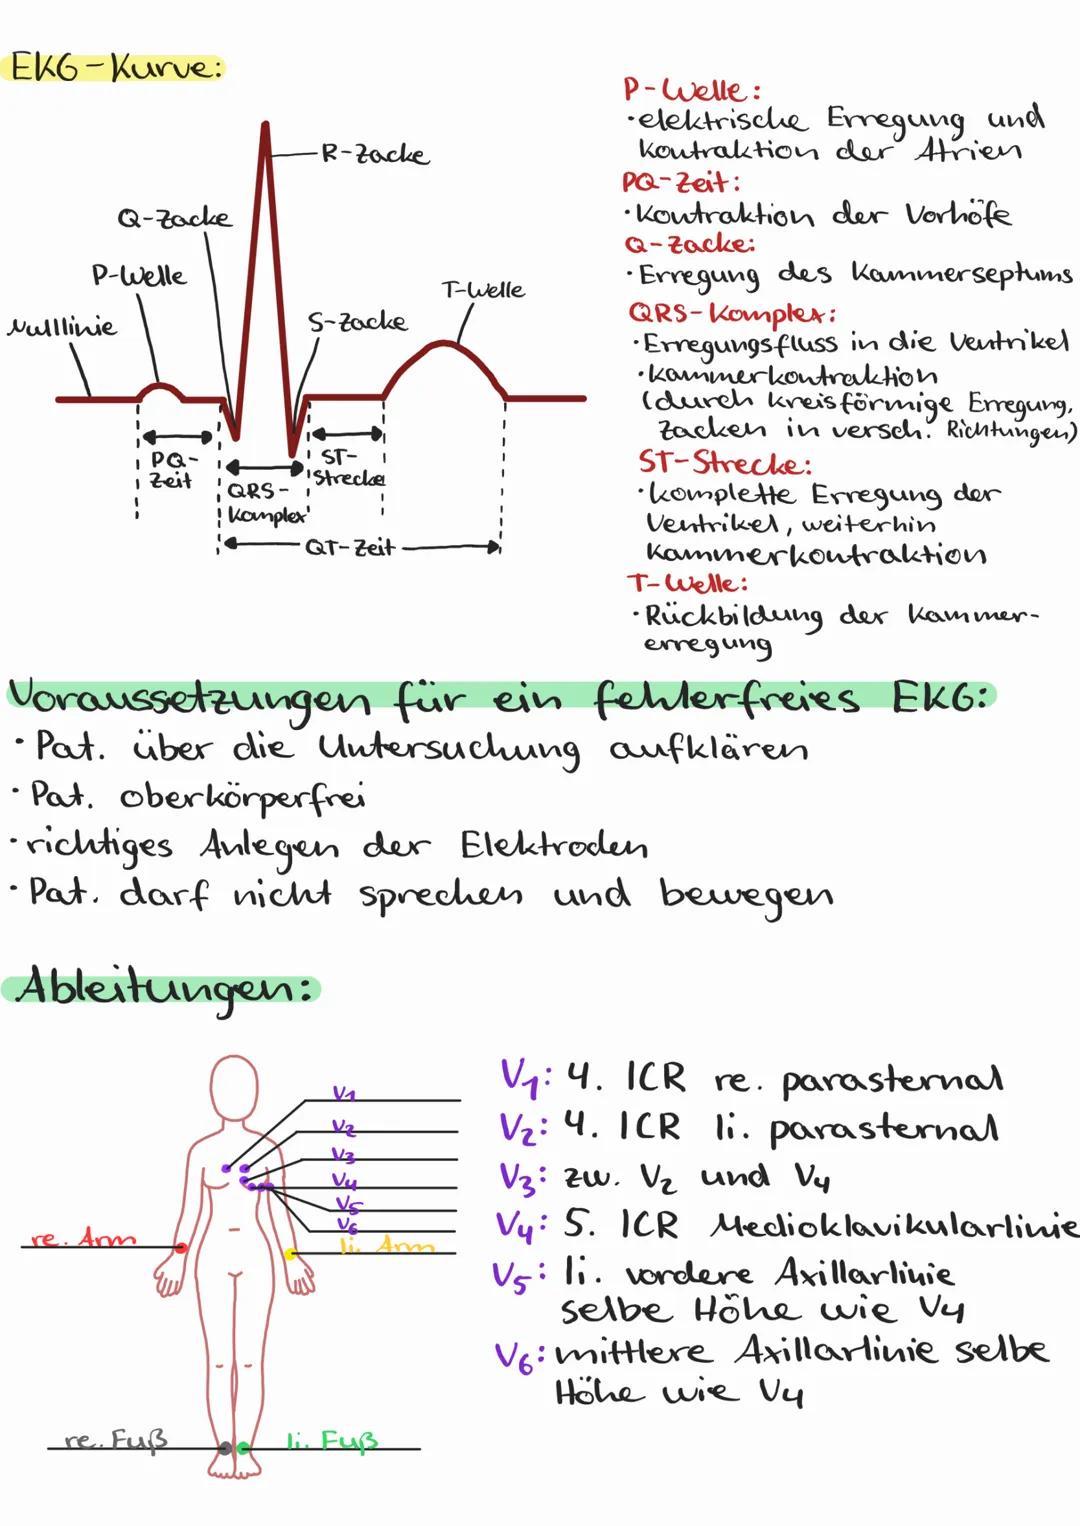 EKG-Kurve:
R-Zacke
Q-Zacke
P-Welle
T-Welle
Nulllinie
S-Zacke
PQ-
Zeit
QRS-
Komplex
ST-
Strecke
QT-Zeit
P-Welle:
·elektrische Erregung und
Kontraktion der Atrien
PQ-Zeit:
·Kontraktion der Vorhöfe
Q-Zacke:
·Erregung des Kammerseptums
QRS-Komplex:
·Erregungsfluss in die Ventrikel
·Kammerkontraktion
(durch kreisförmige Erregung,
Zacken in versch. Richtungen)
ST-Strecke:
·komplette Erregung der
Ventrikel, weiterhin
Kammerkontraktion
T-Welle:
·Rückbildung der Kammer-
erregung
Voraussetzungen für ein fehlerfreies EKG:
·Pat. über die Untersuchung aufklären
·Pat. oberkörperfrei
·richtiges Anlegen der Elektroden
·Pat. darf nicht sprechen und bewegen
Ableitungen:
V1
V2
V3
V4
V5
V6
re. Arm
li. Arm
re. Fuß
li. Fuß
V1: 4. ICR re. parasternal
V2: 4. ICR li. parasternal
V3: zw. V2 und V4
V4: 5. ICR Medioklavikularlinie
V5: li. vordere Axillarlinie
selbe Höhe wie V4
V6: mittlere Axillarlinie selbe
Höhe wie V4